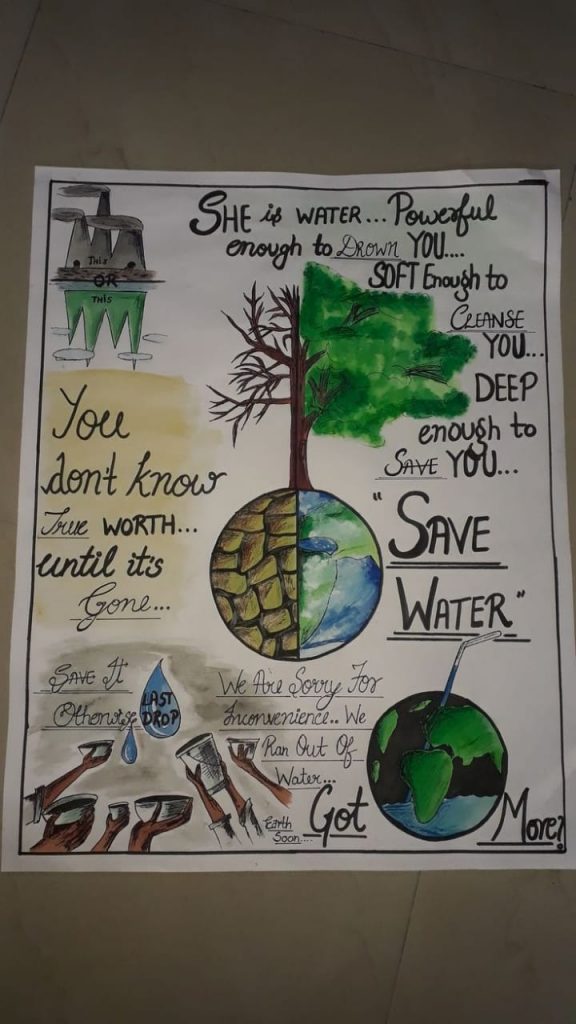 THIS
OR
THIS
SHE is WATER... Powerful
enough to Drown YOU....
SOFT Enough to
CLEANSE
YOU...
DEEP
enough to
SAVE YOU...
You
don't know
True WORTH...
until it's
Gone...
"SAVE
WATER"
SAVE It
Otherwise
LAST
DROP
We Are Sorry For
Inconvenience.. We
Ran Out Of
Water...
Earth
Soon....
Got
More?